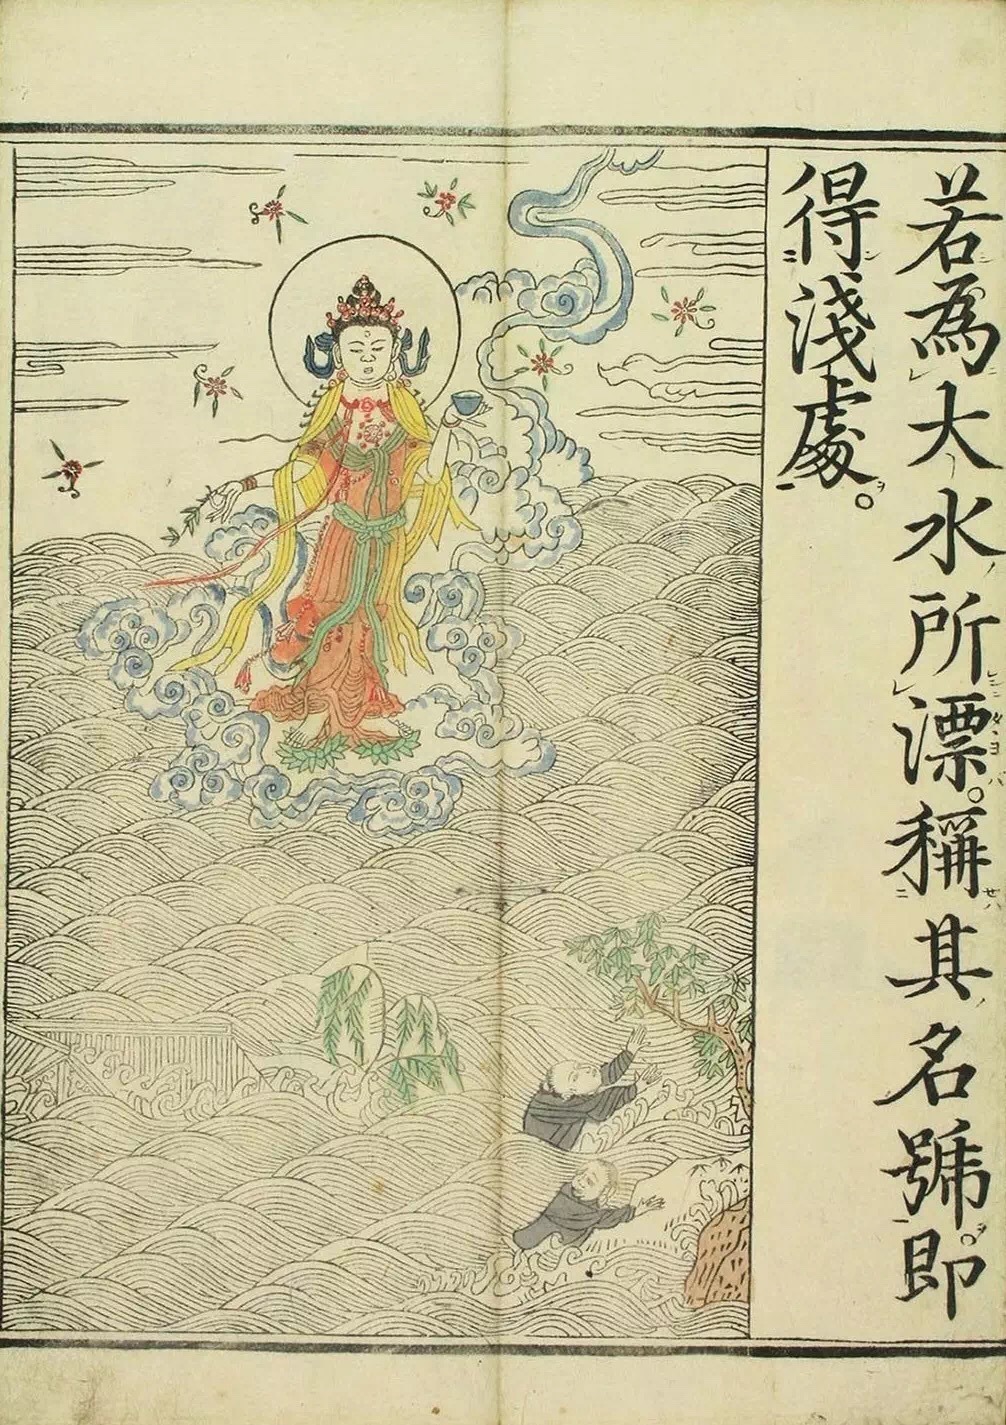 若為大水所漂。稱其名號。即
得淺處。